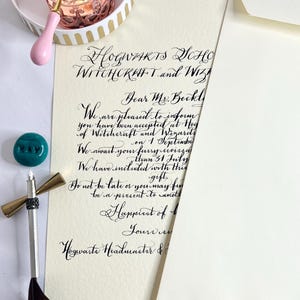 Hogwarts Scho
Witchcraft and Wiz
Dear Ms. Beckl
We are pleased to inform
you have been accepted at Ho
of Witchcraft and Wizard
on 1 Septemb
We await your
than 31 July
We have included with this
gift.
Do not be late or you may
be a present to
Happiest of
Yours
Hogwarts Headmaster &